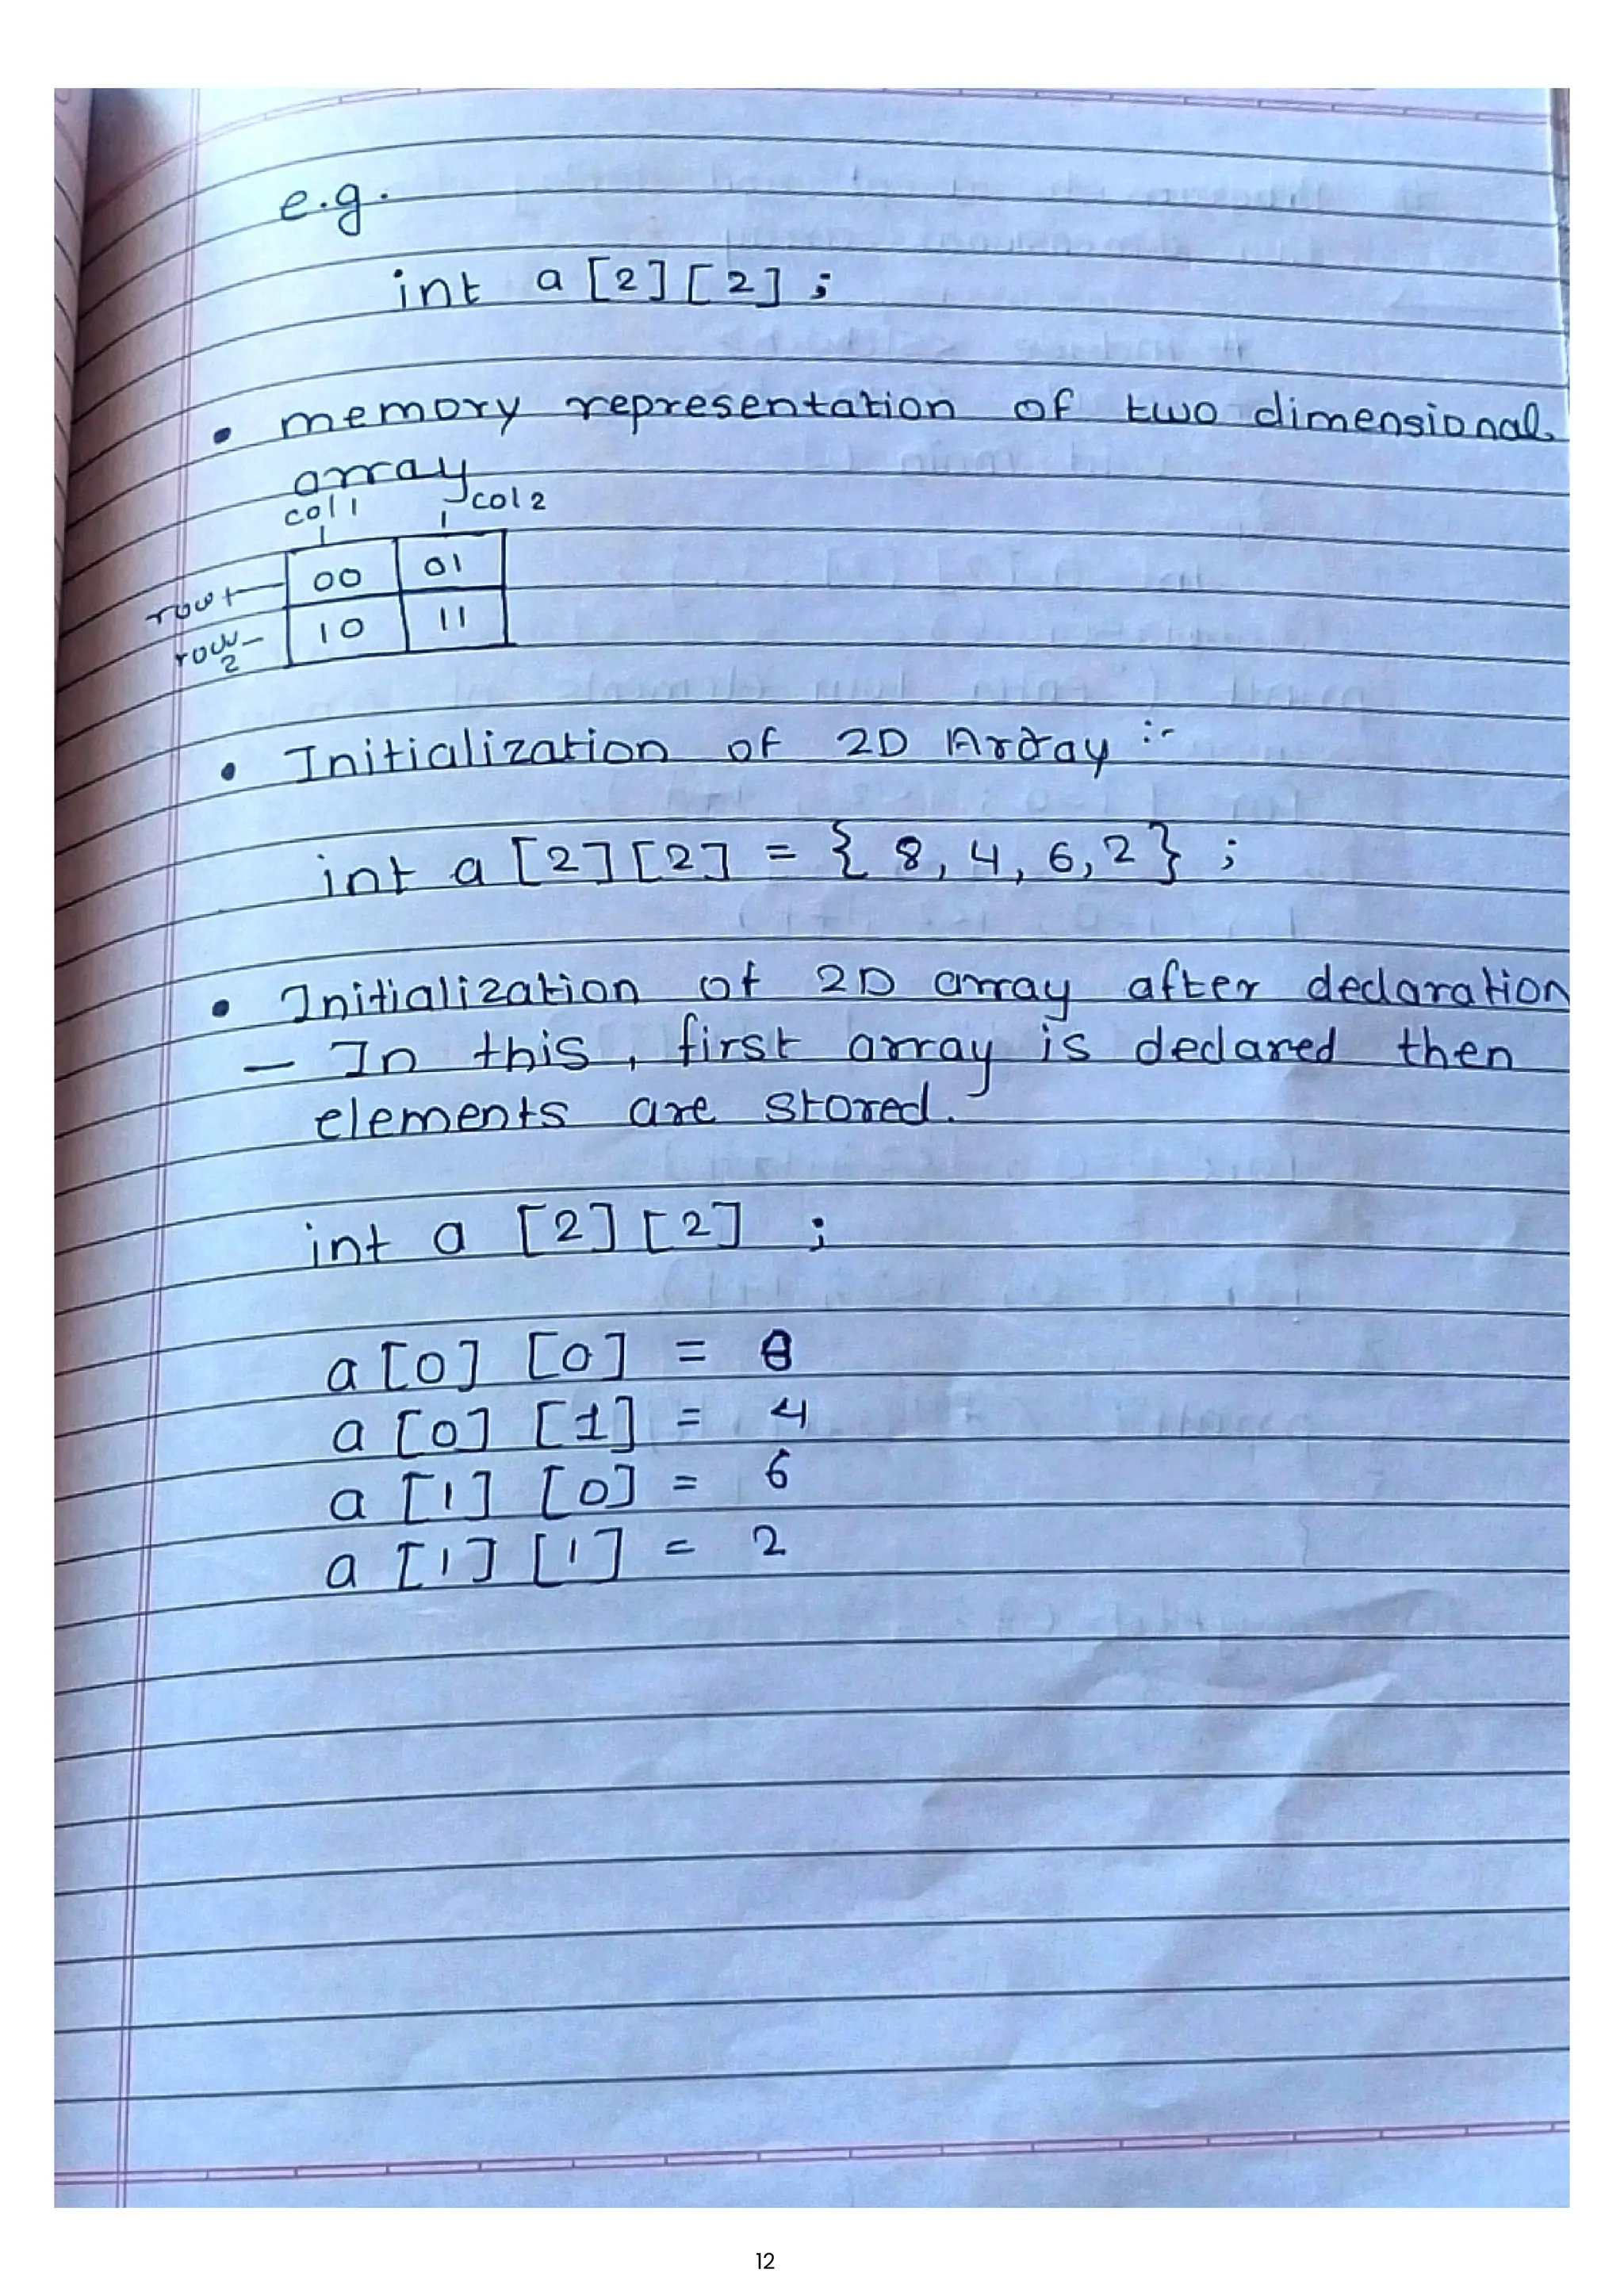 e.g.
int a [2] [2] ;
• memory representation of two dimensional
array
col 1 col 2
row 1 00 01
row 2 10 11
• Initialization of 2D Array :-
int a [2] [2] = { 8, 4, 6, 2 } ;
• Initialization of 2D array after declaration
- In this, first array is declared then
elements are stored.
int a [2] [2] ;
a [0] [0] = 8
a [0] [1] = 4
a [1] [0] = 6
a [1] [1] = 2
12